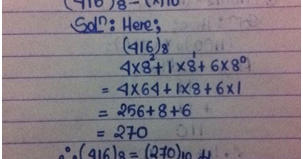 (416)8 – (x)10
Solⁿ: Here;
(416)8
4x8²+1x8¹+6x8⁰
= 4x64+1x8+6x1
= 256+8+6
= 270
∴ (416)8 = (270)10 #